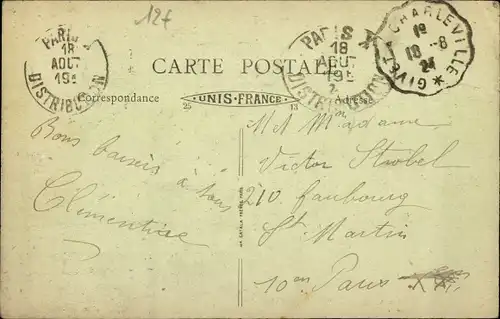 12f
PARIS
18
AOUT
19
DISTRIBUTION
PARIS
18
AOUT
19
DISTRIBUTION
CHARLEVILLE
18-8
GIVET
CARTE POSTALE
Correspondance
UNIS-FRANCE
Adresse
25
13
Bons baisers
à tous
Clémentine
M et Madame
Victor Strobel
210 faubourg
St Martin
10em Paris